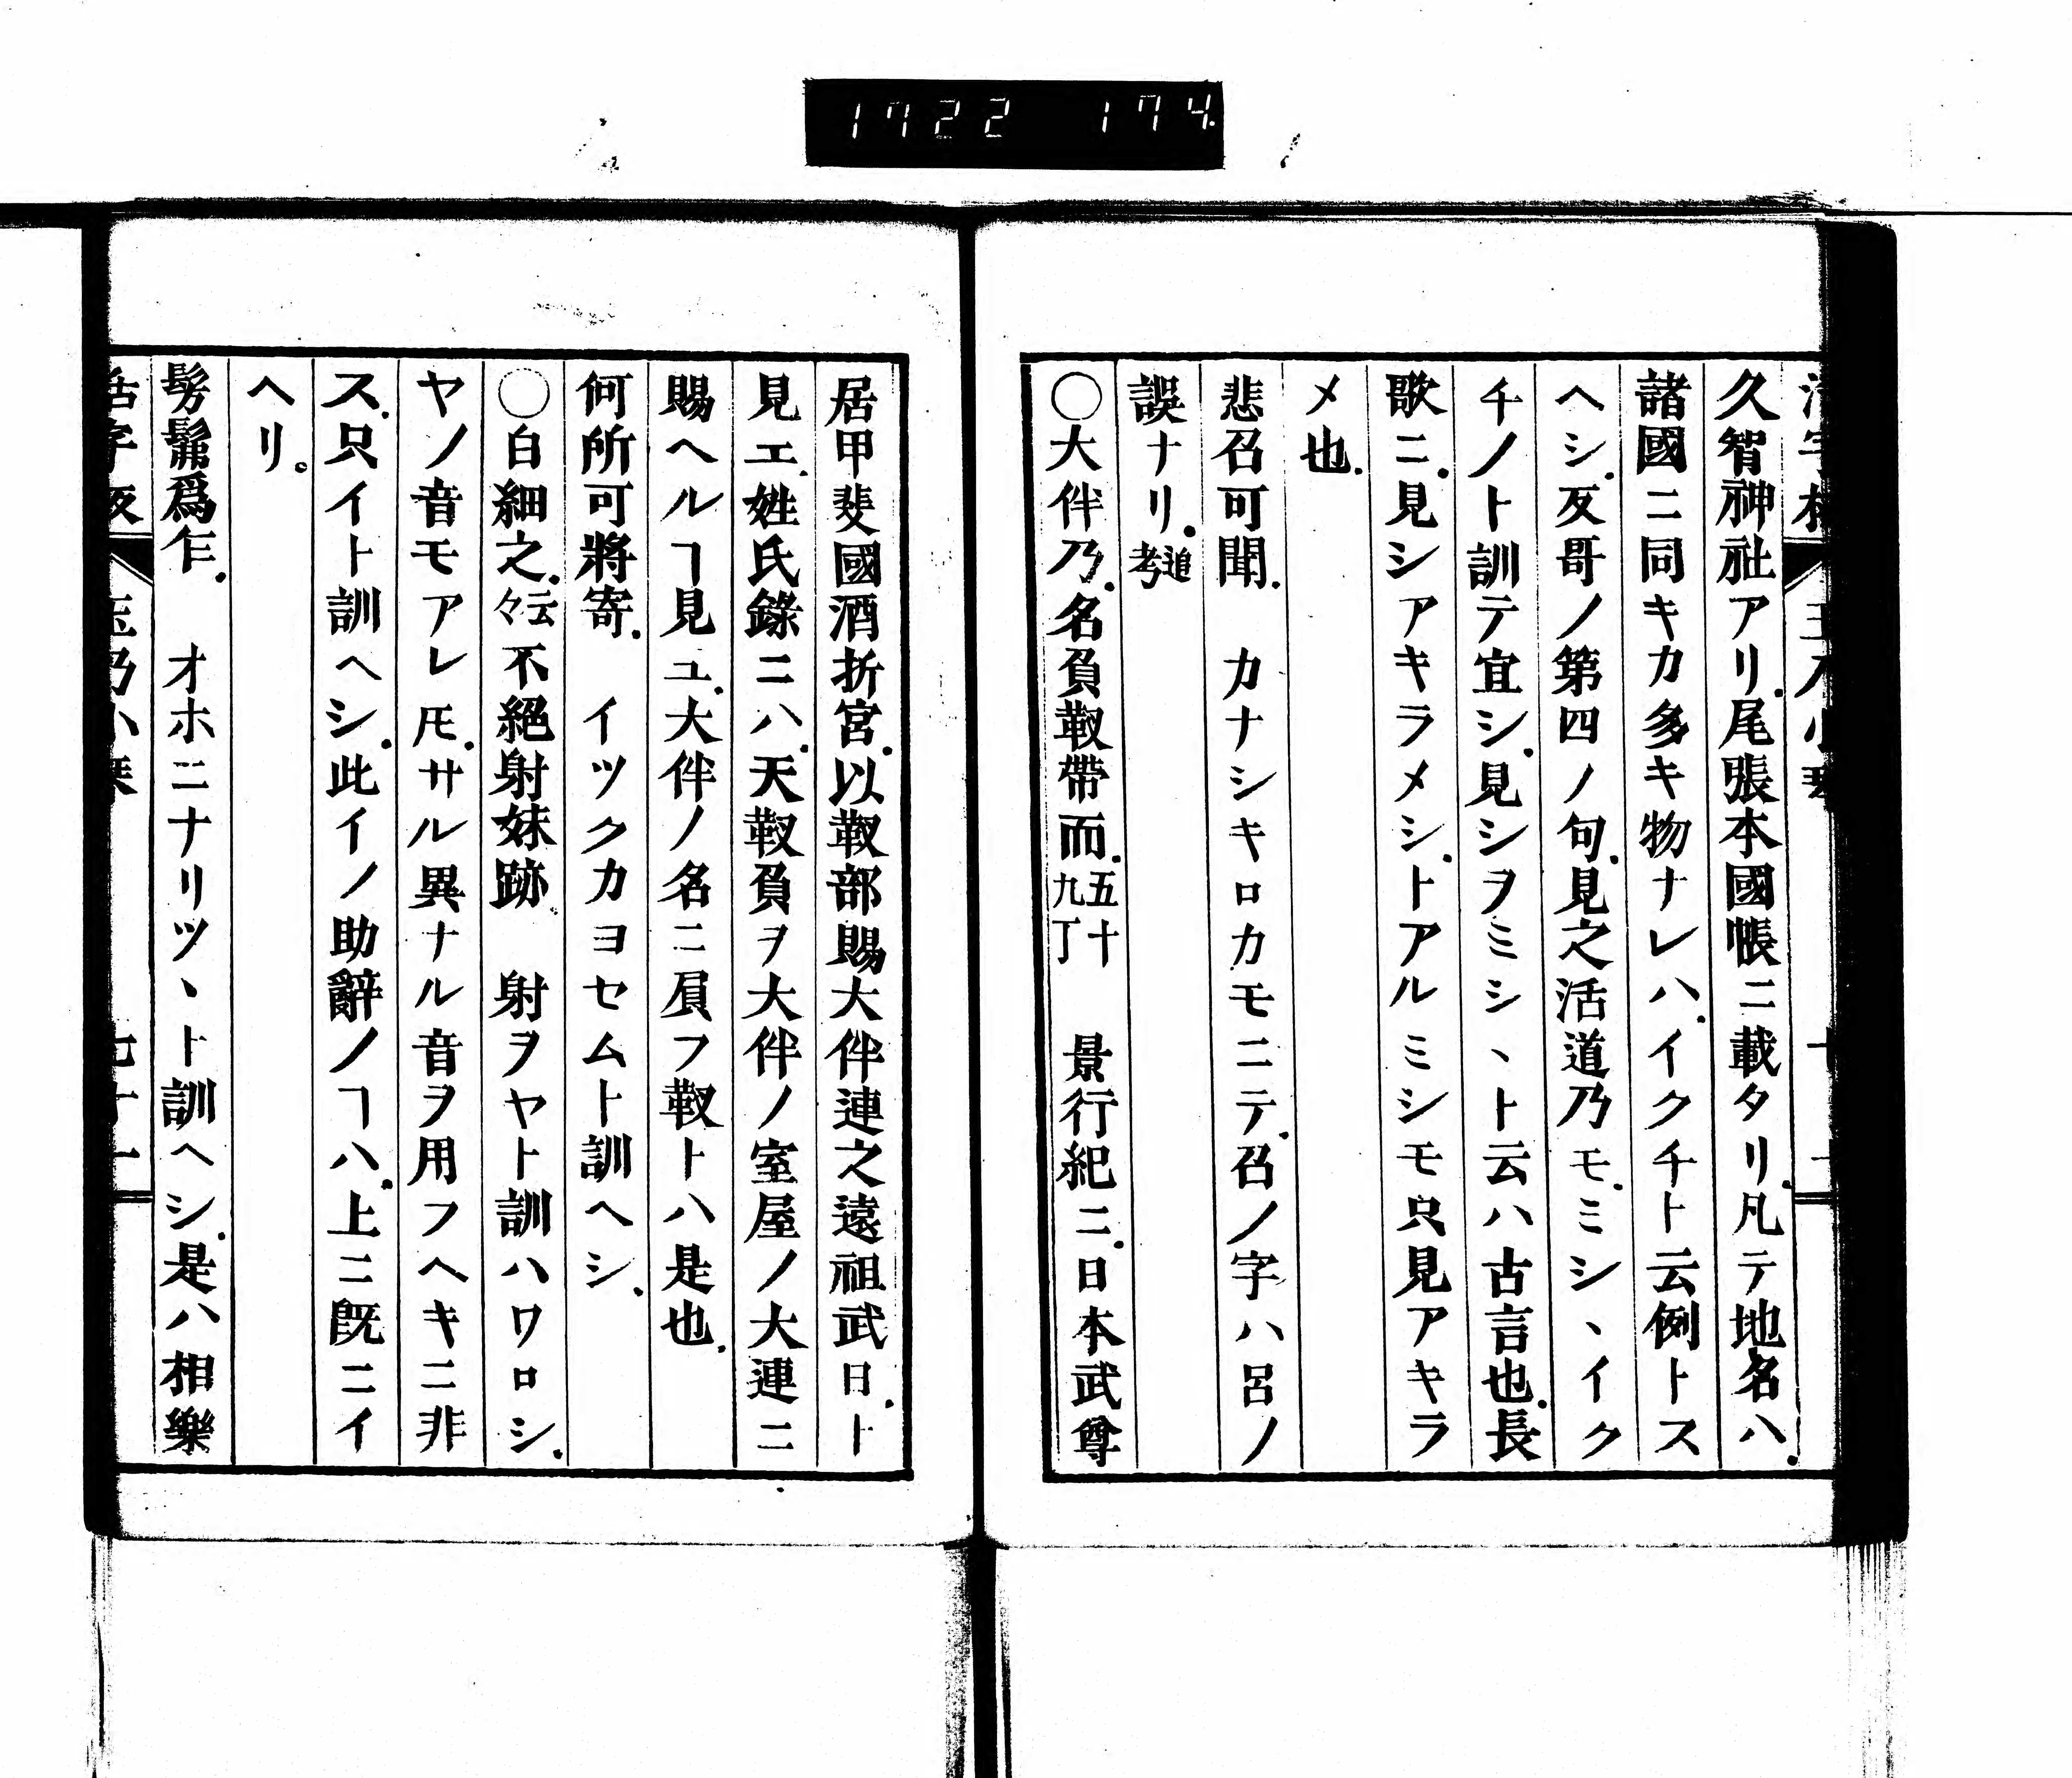 1722 174
久智神社アリ.尾張本國帳ニ載タリ.凡テ地名ハ.
諸國ニ同キカ多キ物ナレハ.イクチト云例トス
ヘシ.反哥ノ第四ノ句.見之活道乃モ.ミシヽイク
チノト訓テ宜シ.見シヲミシヽト云ハ古言也.長
歌ニ.見シアキラメシ.トアルミシモ只見アキラ
メ也.
悲召可聞.　カナシキロカモニテ.召ノ字ハ呂ノ
誤ナリ.追考
○大伴乃.名負靫帶而.五十九丁　景行紀ニ.日本武尊
居甲斐國酒折宮.以靫部賜大伴連之遠祖武日.ト
見エ.姓氏錄ニハ.天靫負ヲ大伴ノ室屋ノ大連ニ
賜ヘルヿ見ユ.大伴ノ名ニ屓フ靫トハ是也.
何所可將寄.　イツクカヨセムト訓ヘシ.
○白細之.云々不絕射妹跡.　射ヲヤト訓ハワロシ.
ヤノ音モアレ𪜈.サル異ナル音ヲ用フヘキニ非
ス.只イト訓ヘシ.此イノ助辭ノヿハ.上ニ既ニイ
ヘリ。
髣髴爲乍.　オホニナリツヽト訓ヘシ.是ハ相樂